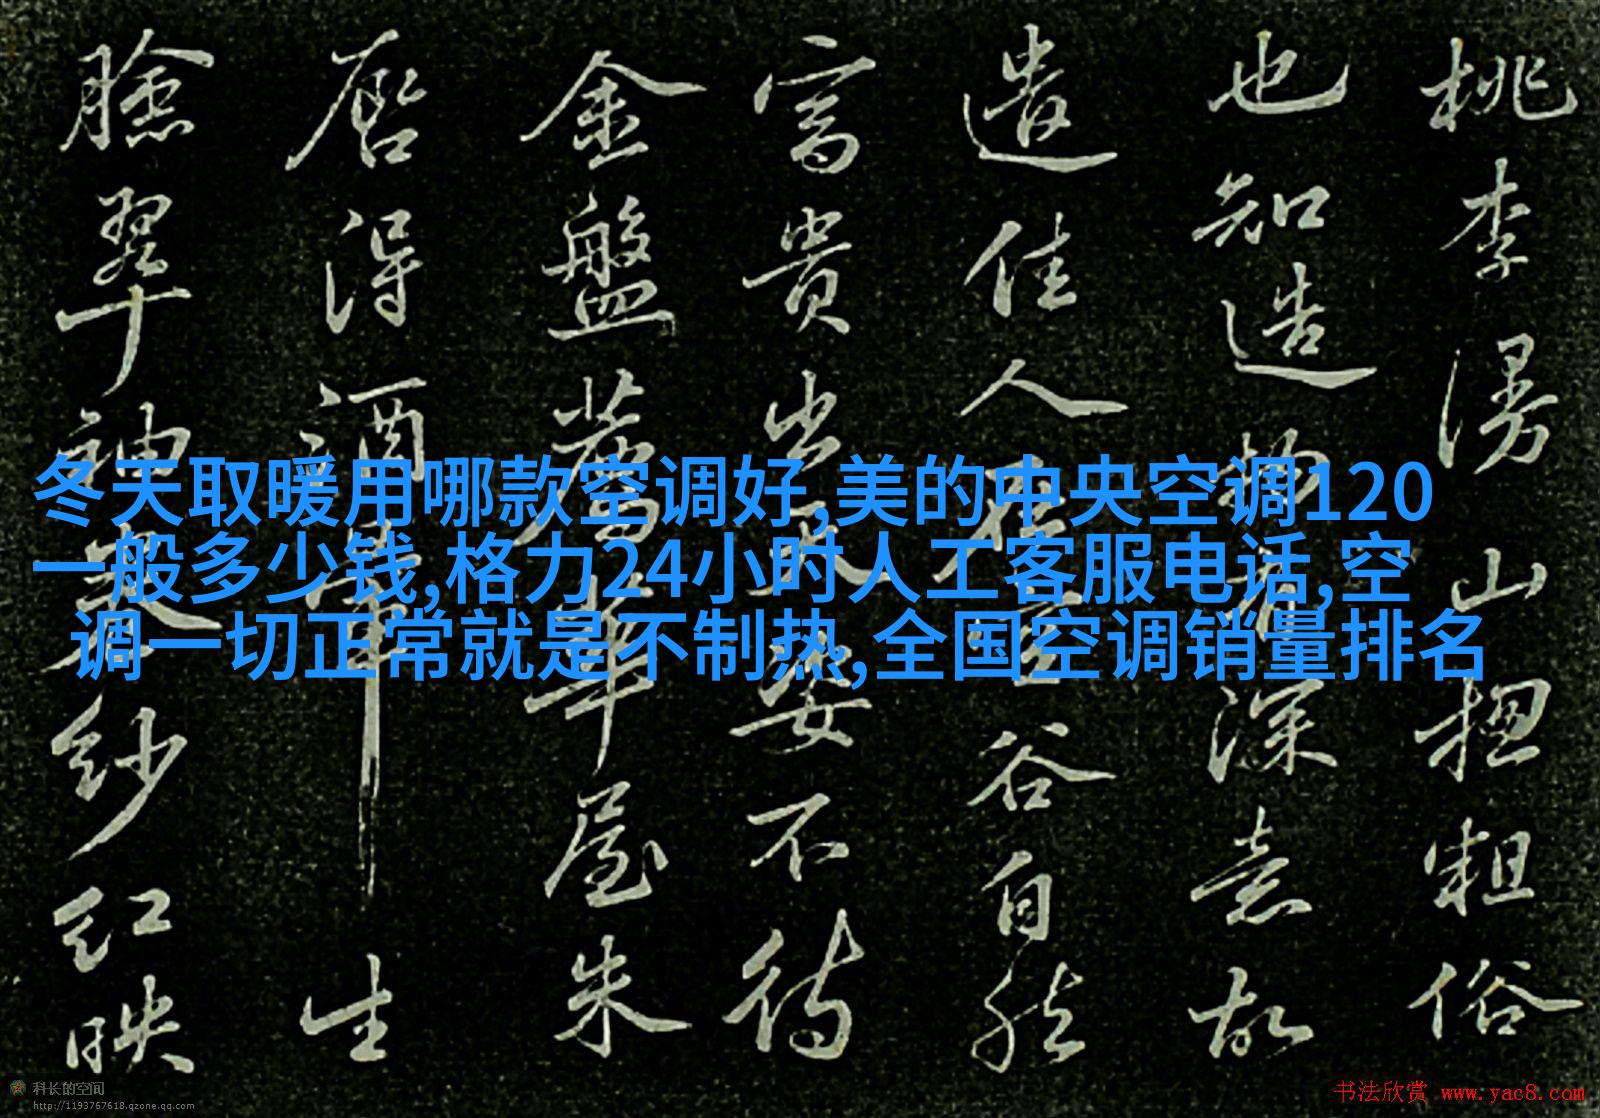 冬天取暖用哪款空调好,美的中央空调120
一般多少钱,格力24小时人工客服电话,空
调一切正常就是不制热,全国空调销量排名
桃李漫山揔粗俗
也知造物有深意故
遣佳人在空谷自然
富貴出天姿不待
金盤薦華屋朱
唇得酒暈生
臉翠袖卷紗红映
科长的空间
http://1193767618.qzone.qq.com
书法欣赏 www.yac8.com